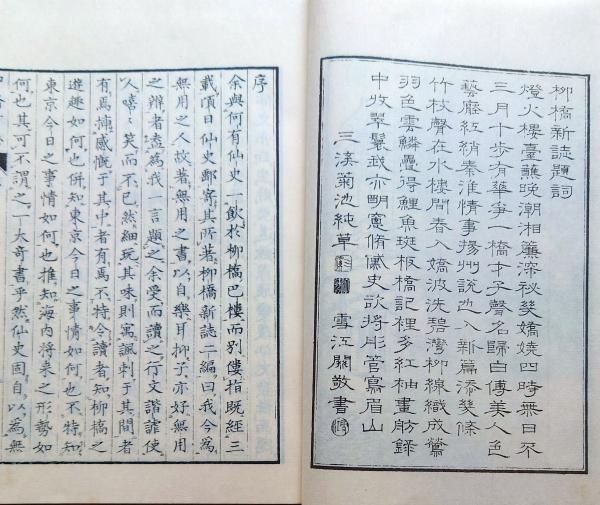 柳橋新誌題詞
燈火樓臺蘸晚潮湘簾深祕幾嬌嬈四時無日不
三月十步有華爭一橋才子聲名歸白傅美人色
藝壓紅綃秦淮情事揚州說也入新篇添幾條
竹枝聲在水樓間春入嬌波洗碧灣柳線織成鶯
羽色雲鱗疊得鯉魚斑板橋記裡多紅袖畫舫錄
中收翠鬟我亦明窻脩史欲將彤管寫眉山
三溪菊池純草 雪江關敬書
序
余與何有仙史一飲於柳橋巴樓而別僂指既經三
載頃日仙史郵寄其所著柳橋新誌二編曰我今為
無用之人故著無用之書以自樂耳柳子亦好無用
之辨者盍為我一言題之余受而讀之行文諧謔使
人嘻々笑而不已然細玩其味則寓諷刺于其間者
有焉滿感慨于其中者有焉不特令讀者知柳橋之
遊趣如何也併知東京今日之事情如何也不特知
東京今日之事情如何也推知海内將來之形勢如
何也其可不謂之一大奇書乎然仙史固自以為無